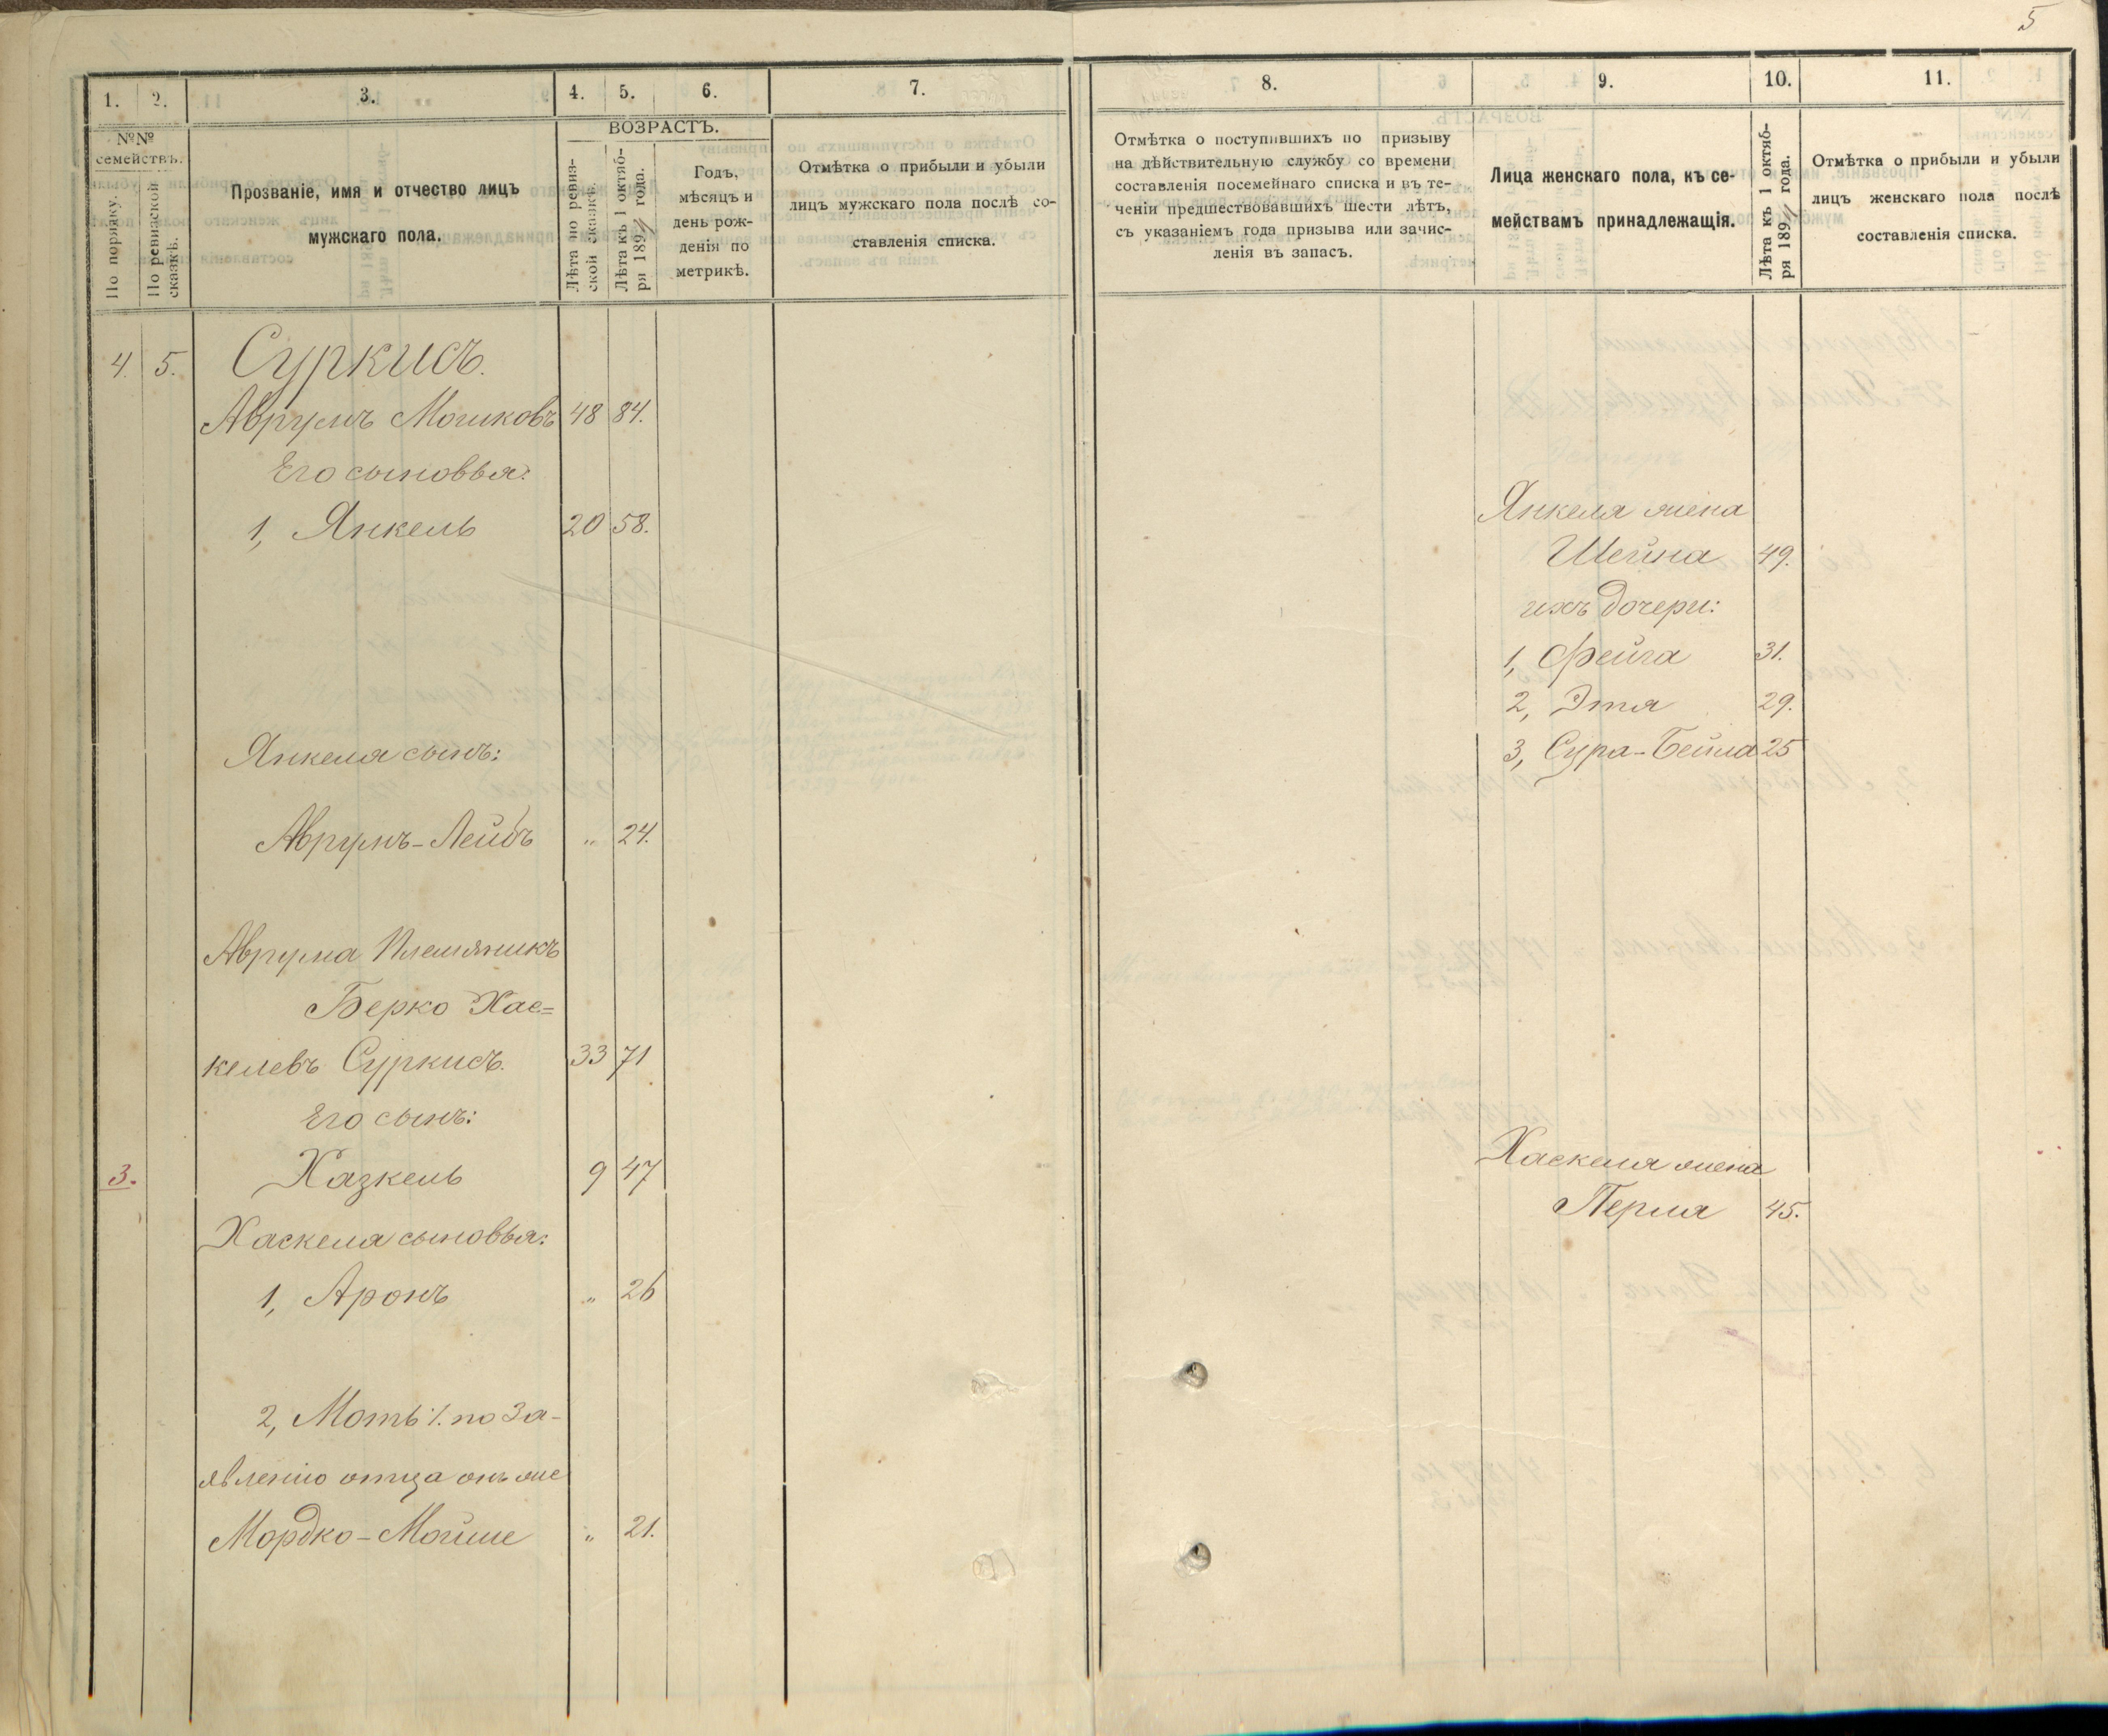 5
1. 2. 3. 4. 5. 6. 7.
№№ семействъ.
По порядку.
По ревизской сказкѣ.
Прозваніе, имя и отчество лицъ
мужскаго пола.
ВОЗРАСТЪ.
Лѣта по ревиз-
ской сказкѣ.
Лѣта къ 1 октяб-
ря 189 года.
Годъ,
мѣсяцъ и
день рож-
денія по
метрикѣ.
Отмѣтка о прибыли и убыли
лицъ мужскаго пола послѣ со-
ставленія списка.
8. 9. 10. 11.
Отмѣтка о поступившихъ по призыву
на дѣйствительную службу со времени
составленія посемейнаго списка и въ те-
ченіи предшествовавшихъ шести лѣтъ,
съ указаніемъ года призыва или зачис-
ленія въ запасъ.
Лица женскаго пола, къ се-
мействамъ принадлежащія.
Лѣта къ 1 октяб-
ря 189 года.
Отмѣтка о прибыли и убыли
лицъ женскаго пола послѣ
составленія списка.
4. 5. Суркисъ.
Аврумъ Мошковъ 48 84.
Его сыновья:
1, Янкель 20 58.
Янкеля сынъ:
Аврумъ-Лейбъ " 24.
Аврума Племяникъ
Берко Хас=
келевъ Суркисъ. 33 71
Его сынъ:
3. Хазкель 9 47
Хаскеля сыновья:
1, Аронъ " 26
2, Моть ·/. по За-
явленію отца онъ же
Мордко-Мойше " 21.
Янкеля жена
Шейна 49.
ихъ дочери:
1, Фейга 31.
2, Этя 29.
3, Сура-Бейла 25
Хаскеля жена
Перля 45.